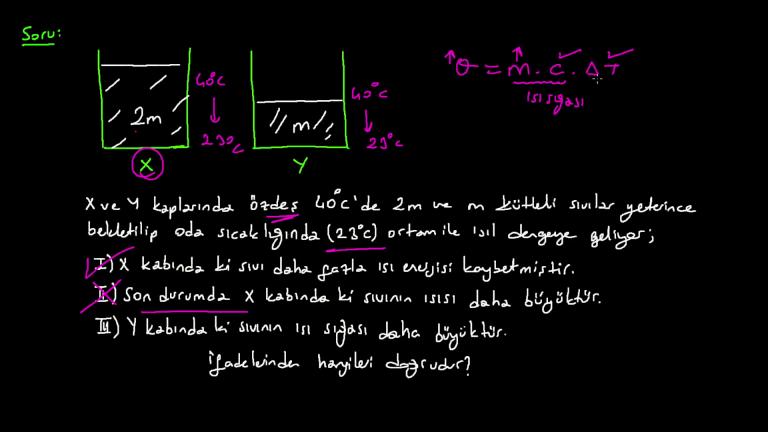 Soru:
Q = m. c. ΔT
ısı sığası
40°C
2m
23°C
X
40°C
m
23°C
Y
X ve Y kaplarında özdeş 40°C'de 2m ve m kütleli sıvılar yeterince
bekletilip oda sıcaklığında (23°C) ortam ile ısıl dengeye geliyor;
I) X kabında ki sıvı daha fazla ısı enerjisi kaybetmiştir.
II) Son durumda X kabında ki sıvının ısısı daha büyüktür.
III) Y kabında ki sıvının ısı sığası daha büyüktür.
ifadelerinden hangileri doğrudur?